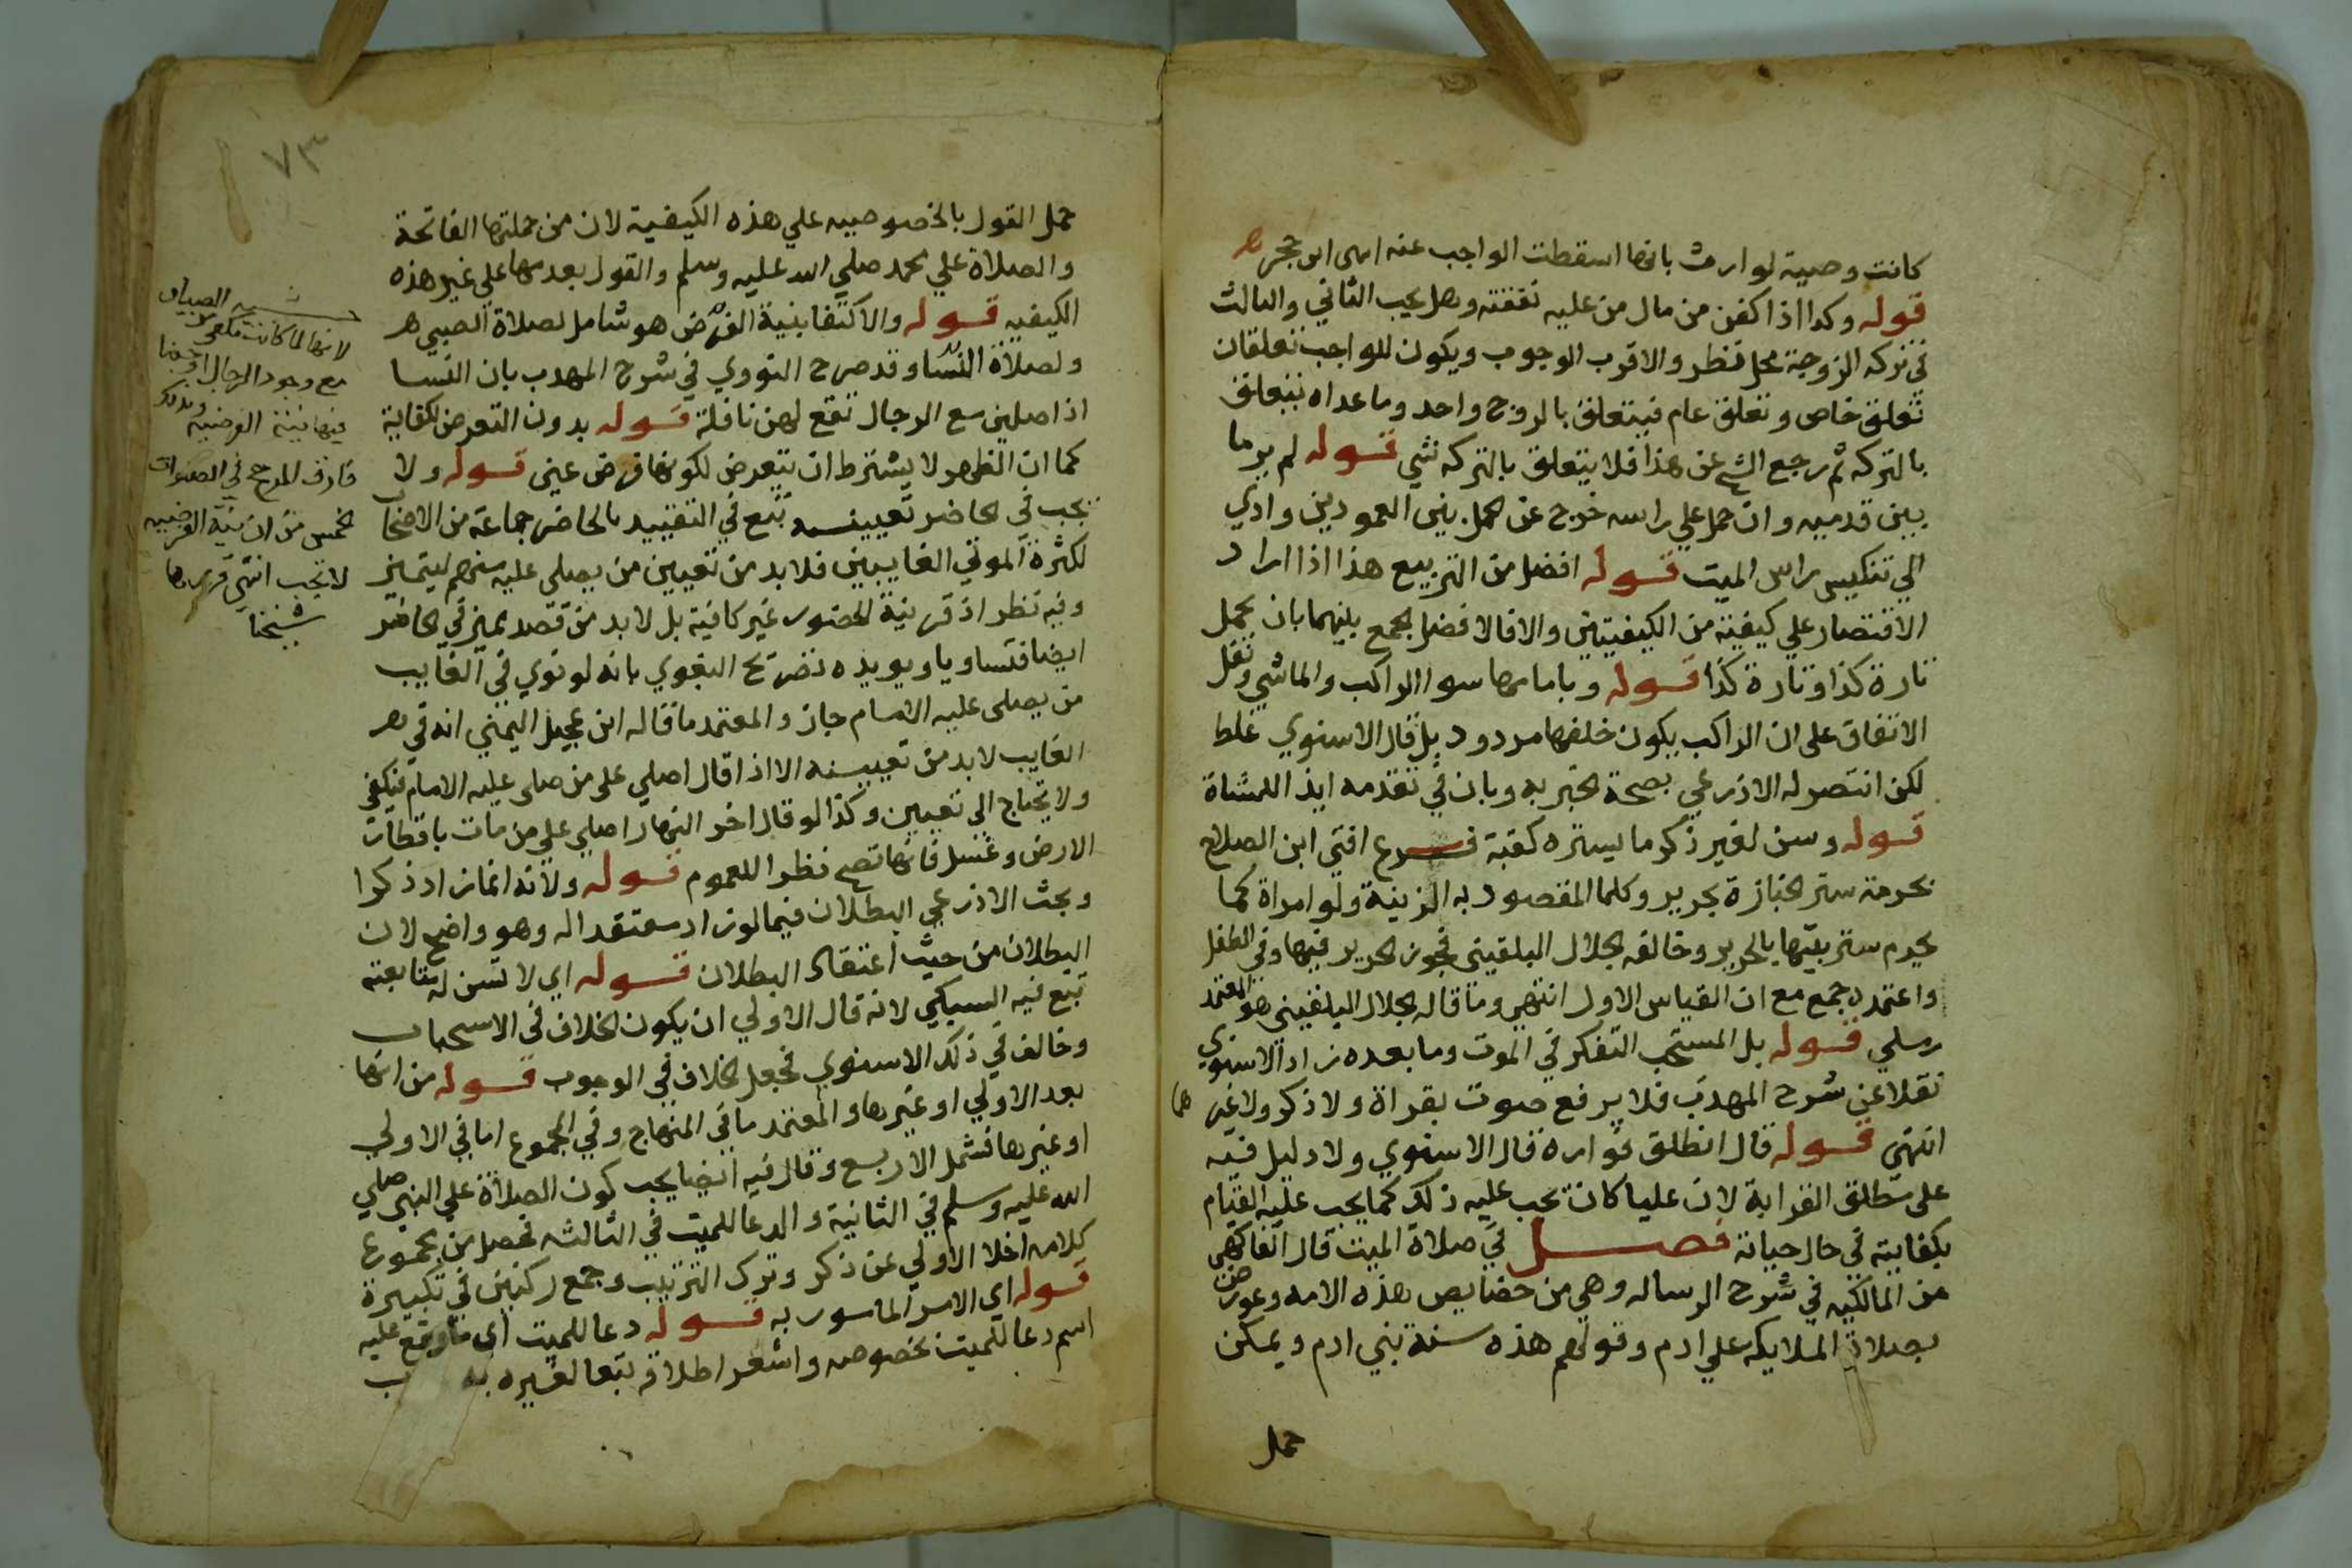 كانت وصية لوارث بانها اسقطت الواجب عنه انتهى ابن حجر
قوله وكدا اذا كفن من مال من عليه نفقته وهل يجب الثاني والثالث
في تركه الزوجة محل نظر والاقرب الوجوب ويكون للواجب تعلقان
تعلق خاص وتعلق عام فيتعلق بالزوج واحد وما عداه يتعلق
بالتركه ثم رجع الشيخ عن هذا فلا يتعلق بالتركه شي قوله لم ير ما
بين قدميه وان حمل علي راسه خرج عن الحمل بين العمودين وادي
الي تنكيس راس الميت قوله افضل من التربيع هذا اذا اراد
الاقتصار علي كيفية من الكيفيتين والا فالافضل الجمع بينهما بان يحمل
تارة كذا وتارة كذا قوله وبامامها سوا الراكب والماشي ونقل
الاتفاق على ان الراكب يكون خلفها مردود بل قال الاسنوي غلط
لكن انتصر له الاذرعي بصحة الخبر به وبان في تقدمه ايذا للمشاة
قوله وسن لغير ذكر ما يستره كقبة فرع افتي ابن الصلاح
بحرمة ستر الجنازة بحرير وكلما المقصود به الزينة ولو امراة كما
يحرم ستر بيتها بالحرير وخالفه الجلال البلقيني فجوز الحرير فيها وفي الطفل
واعتمده جمع مع ان القياس الاول انتهى وما قاله الجلال البلقيني هو المعتمد
رملي قوله بل المستحب التفكر في الموت وما بعده زاد الاسنوي
نقلا عن شرح المهدب فلا يرفع صوت بقراة ولا ذكر ولا غيرهما
انتهي قوله قال انطلق فواره قال الاسنوي ولا دليل فيه
على مطلق القرابة لان عليا كان يجب عليه ذلك كما يجب عليه القيام
بكفايته في حال حياته فصل في صلاة الميت قال الفاكهي
من المالكيه في شرح الرساله وهي من خصايص هذه الامه وعورض
بصلاة الملايكه علي ادم وقولهم هذه سنة بني ادم ويمكن
حمل
٧٣
حمل القول بالخصوصيه علي هذه الكيفية لان من جملتها الفاتحة
والصلاة علي محمد صلي الله عليه وسلم والقول بعدمها علي غير هذه
الكيفيه قوله والاكتفا بنية الفرض هو شامل لصلاة الصبي
ولصلاة النسا وقد صرح النووي في شرح المهدب بان النسا
اذا صلين مع الرجال تقع لهن نافلة قوله بدون التعرض لكفاية
كما ان الظهر لا يشترط ان يتعرض لكونها فرض عين قوله ولا
يجب في الحاضر تعيينه تبع في التقييد بالحاضر جماعة من الاصحاب
لكثرة الموتي الغايبين فلا بد من تعيين من يصلى عليه منهم ليتميز
وفيه نظر اذ قرينة الحضور غير كافية بل لا بد من قصد يميز في الحاضر
ايضا فتساويا ويويده تصريح البغوي بانه لو نوي في الغايب
من يصلى عليه الامام جاز والمعتمد ما قاله ابن عجيل اليمني انه في
الغايب لا بد من تعيينه الا اذا قال اصلي على من صلى عليه الامام فيكفي
ولا يحتاج الى تعيين وكذا لو قال اخر النهار اصلي علي من مات باقطار
الارض وغسل فانها تصح نظرا للعموم قوله ولانه انما زاد ذكرا
وبحث الاذرعي البطلان فيما لو زاد معتقدا له وهو واضح لان
البطلان من حيث اعتقاد البطلان قوله اي لا تسن له متابعته
تبع فيه السبكي لانه قال الاولي ان يكون الخلاف في الاستحباب
وخالف في ذلك الاسنوي فجعل الخلاف في الوجوب قوله من انها
بعد الاولي او غيرها والمعتمد ما في المنهاج وفي المجموع اما في الاولي
او غيرها فشمل الاربع وقال فيه ايضا يجب كون الصلاة علي النبي صلي
الله عليه وسلم في الثانية والدعا للميت في الثالثه فحصل من مجموع
كلامه اخلا الاولي عن ذكر وترك الترتيب وجمع ركنين في تكبيرة
قوله اي الامر المامور به قوله دعا للميت اي ما وقع عليه
اسم دعا للميت بخصوصه واشعر اطلاقه تبعا لغيره به
لانها لما كانت
مع وجود الرجال اوجبنا
فيها نية الفرضيه وبذلك
فارق المرجح في الصلوات
الخمس من ان نية الفرضيه
لا تجب انتهي قرره
شيخنا